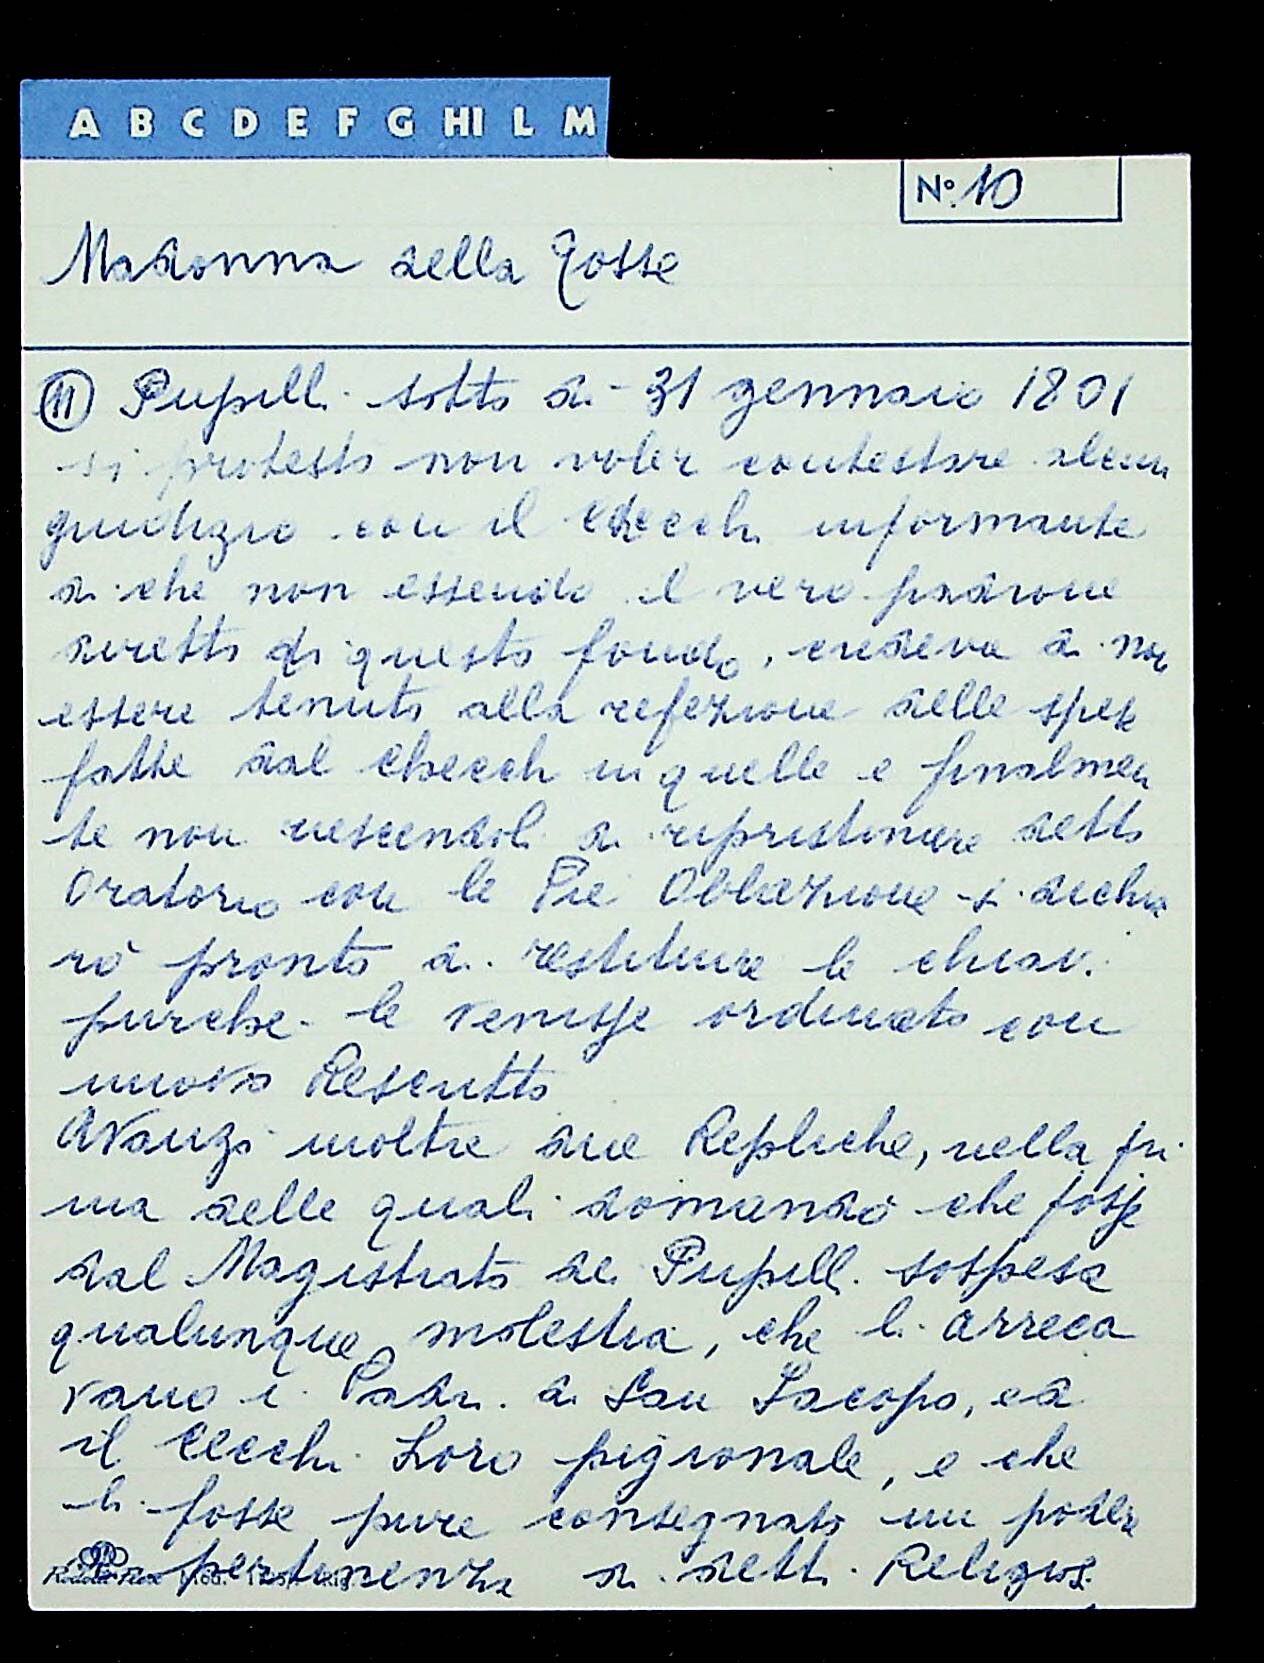 A B C D E F G HI L M
N° 10
Madonna della Tosse
(11) Pupilli sotto di - 31 gennaio 1801
si protestò non voler contestare alcun
giudizio con il Checchi informante
di che non essendo il vero padrone
diretto di questo fondo, credeva di non
essere tenuto alla refezione delle spese
fatte dal Checchi in quelle e finalmen
te non riescendoli di ripristinare detto
Oratorio con le Pie Obblazione si dichia
rò pronto di restituire le chiavi
purche le venisse ordinato con
nuovo Rescritto
Avanzò inoltre due Repliche, nella pri
ma delle quali domandò che fosse
dal Magistrato dei Pupilli sospesa
qualunque molestia, che li arreca
vano i Padri di San Jacopo, ed
il Cecchi Loro pigionale, e che
li fosse pure consegnato un podere
di pertinenza di detti Religiosi